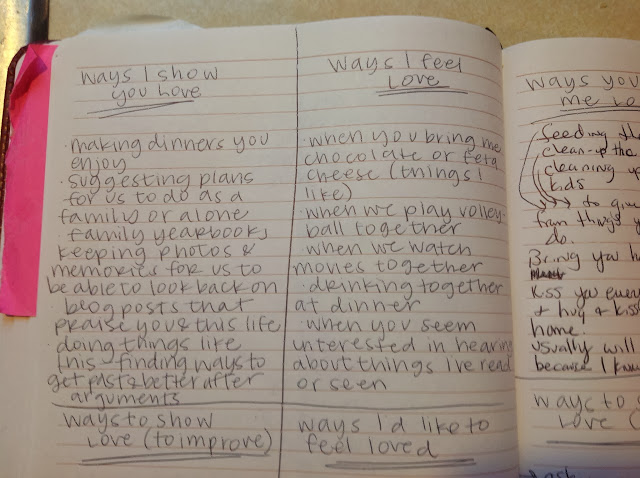 ways I show
you Love
· making dinners you
enjoy
· suggesting plans
for us to do as a
family or alone
· family yearbooks
keeping photos &
memories for us to
be able to look back on
· blog posts that
praise you & this life
doing things like
this - finding ways to
get past & better after
arguments
ways to show
Love (to improve)
ways I feel
Love
· when you bring me
chocolate or feta
cheese (things I
like)
· when we play volley-
ball together
· when we watch
movies together
· drinking together
at dinner
· when you seem
interested in hearing
about things I've read
or seen
ways I'd like to
feel loved
ways you
me
feeding
clean-up the
cleaning up
kids
to give
from things
do.
Bring you
Kiss you
& hug & kiss
home
usually will
because I know
ways to
Love (